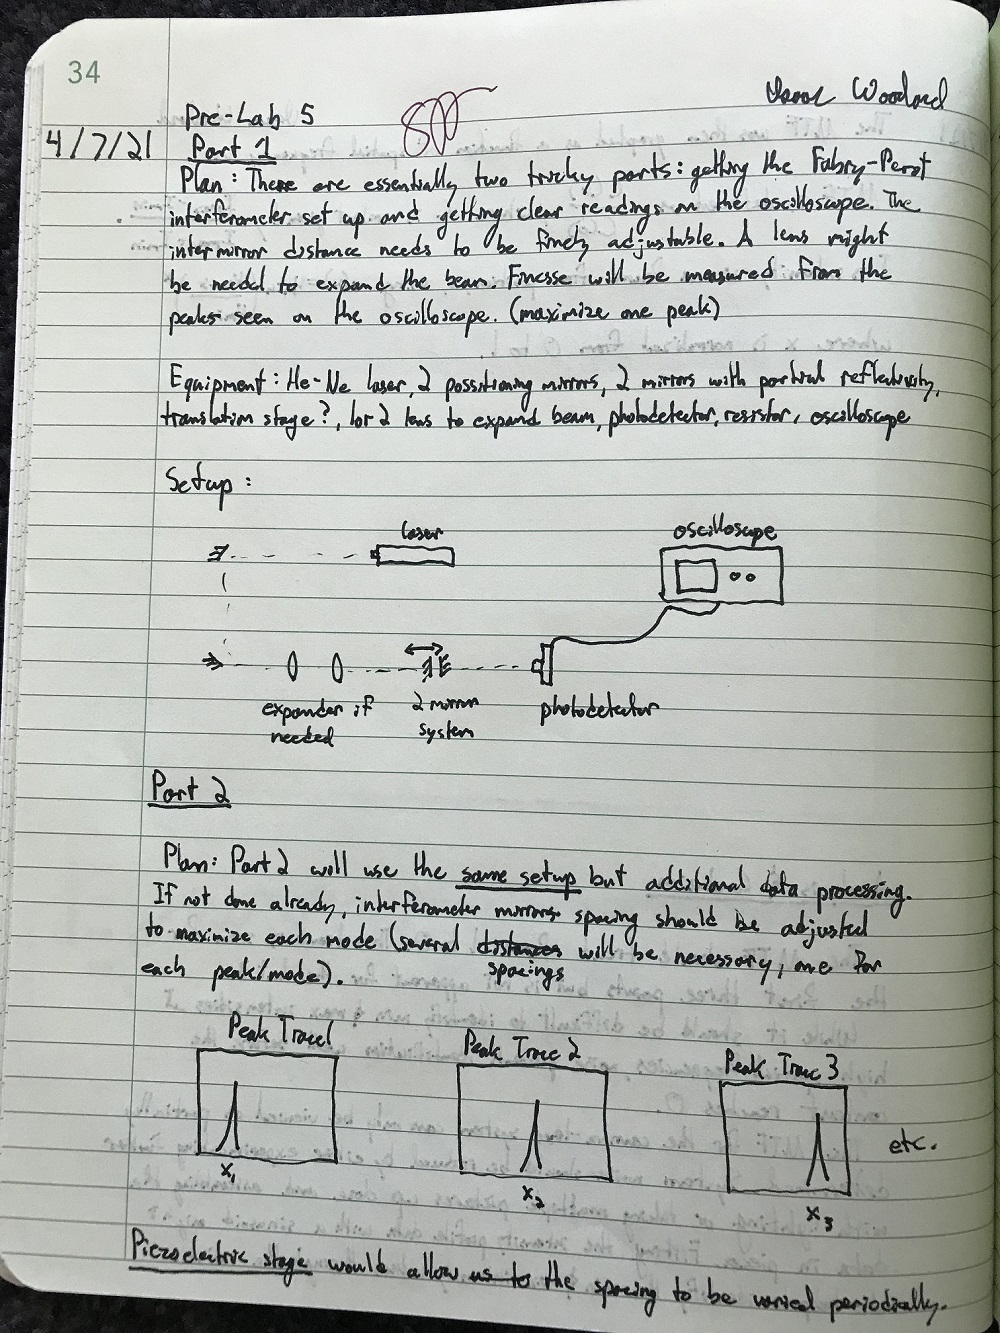 34
Woodard
Pre-Lab 5
4/7/21
Part 1
Plan: There are essentially two tricky parts: getting the Fabry-Perot
interferometer set up and getting clear readings on the oscilloscope. The
intermirror distance needs to be finely adjustable. A lens might
be needed to expand the beam. Finesse will be measured from the
peaks seen on the oscilloscope. (maximize one peak)
Equipment: He-Ne laser, 2 possitioning mirrors, 2 mirrors with partial reflectivity,
translation stage?, 1 or 2 lens to expand beam, photodetector, resistor, oscilloscope
Setup:
laser
oscilloscope
expander if
needed
2 mirror
system
photodetector
Part 2
Plan: Part 2 will use the same setup but additional data processing.
If not done already, interferometer mirrors spacing should be adjusted
to maximize each mode (several distances will be necessary, one for
spacings
each peak/mode).
Peak Trace 1
Peak Trace 2
Peak Trace 3
etc.
x₁
x₂
x₃
Piezoelectric stage would allow us to the spacing to be varied periodically.